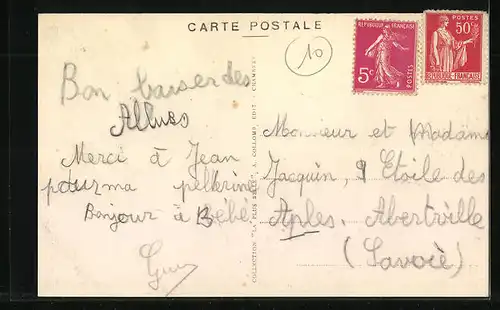 CARTE POSTALE
10
REPUBLIQUE FRANÇAISE
5c
POSTES
POSTES
50c
REPUBLIQUE FRANÇAISE
Bon baiser des
Allues
Merci à Jean
pour ma pellerine
Bonjour à Bébé
Guy
COLLECTION "LA PLUS BELLE", A. COLLOMB, EDIT - CHAMBERY
Monsieur et Madame
Jacquin, 9 Etoile des
Aples. Abertville
(Savoie)